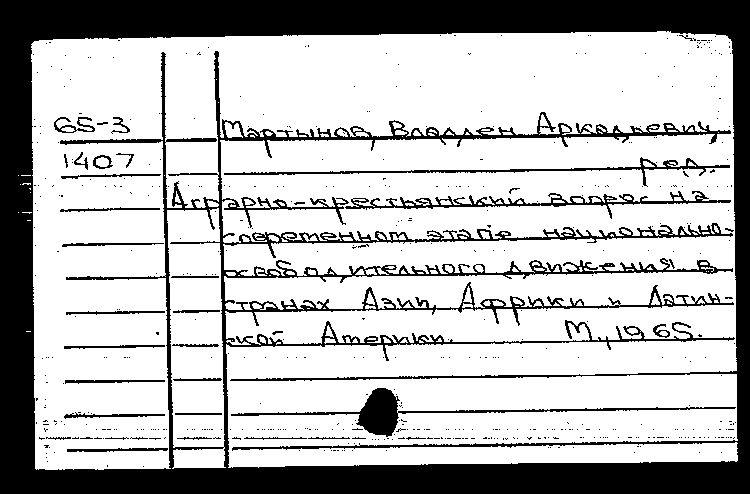 65-3 Мартынов, Владлен Аркадьевич,
1407 ред.
Аграрно-крестьянский вопрос на
современном этапе национально-
освободительного движения в
странах Азии, Африки и Латин-
ской Америки. М., 1965.